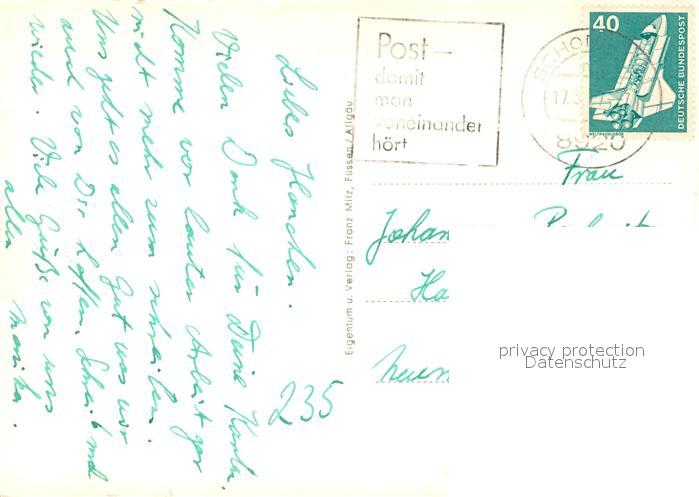 Liebes Hanchen.
Vielen Dank für Deine Karte.
Komme vor lauter Arbeit gar
nicht mehr zum schreiben.
Uns geht es allen Gut was wir
auch von Dir hoffen. Schreib mal
wieder. Viele Grüße von uns
allen Monika.
235
Eigentum u. Verlag: Franz Milz, Füssen / Allgäu
Post –
damit
man
voneinander
hört
17.3
8920
40
DEUTSCHE BUNDESPOST
WELTRAUMLABOR
Frau
Johan
Ha
privacy protection
Datenschutz